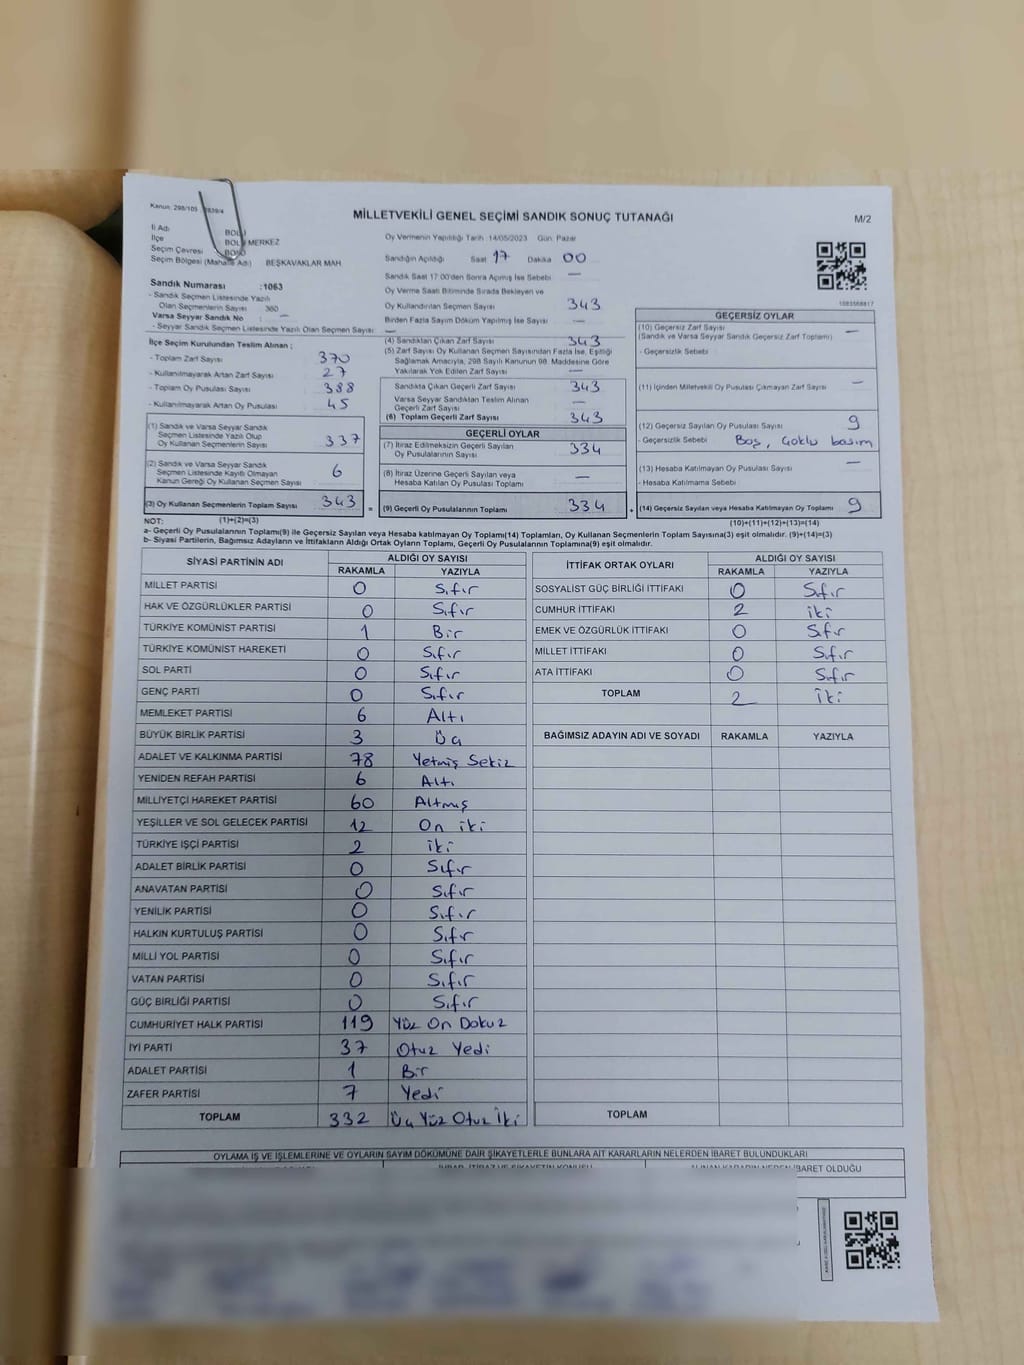 Kanun: 298/105 2839/4
MİLLETVEKİLİ GENEL SEÇİMİ SANDIK SONUÇ TUTANAĞI
M/2
İl Adı
İlçe BOLU MERKEZ
Seçim Çevresi BOLU
Seçim Bölgesi (Mahalle Adı) BEŞKAVAKLAR MAH
Sandık Numarası :1063
- Sandık Seçmen Listesinde Yazılı
Olan Seçmenlerin Sayısı 360
Varsa Seyyar Sandık No : —
- Seyyar Sandık Seçmen Listesinde Yazılı Olan Seçmen Sayısı: —
Oy Vermenin Yapıldığı Tarih :14/05/2023 Gün: Pazar
Sandığın Açıldığı Saat 17 Dakika 00
Sandık Saat 17:00'den Sonra Açılmış İse Sebebi —
Oy Verme Saati Bitiminde Sırada Bekleyen ve
Oy Kullandırılan Seçmen Sayısı 343
Birden Fazla Sayım Döküm Yapılmış İse Sayısı —
1083568817
İlçe Seçim Kurulundan Teslim Alınan ;
- Toplam Zarf Sayısı 370
- Kullanılmayarak Artan Zarf Sayısı 27
- Toplam Oy Pusulası Sayısı 388
- Kullanılmayarak Artan Oy Pusulası 45
(1) Sandık ve Varsa Seyyar Sandık
Seçmen Listesinde Yazılı Olup
Oy Kullanan Seçmenlerin Sayısı 337
(2) Sandık ve Varsa Seyyar Sandık
Seçmen Listesinde Kayıtlı Olmayan
Kanun Gereği Oy Kullanan Seçmen Sayısı 6
(3) Oy Kullanan Seçmenlerin Toplam Sayısı 343 =
(1)+(2)=(3)
(4) Sandıktan Çıkan Zarf Sayısı 343
(5) Zarf Sayısı Oy Kullanan Seçmen Sayısından Fazla İse, Eşitliği
Sağlamak Amacıyla, 298 Sayılı Kanunun 98. Maddesine Göre
Yakılarak Yok Edilen Zarf Sayısı —
Sandıkta Çıkan Geçerli Zarf Sayısı 343
Varsa Seyyar Sandıktan Teslim Alınan
Geçerli Zarf Sayısı —
(6) Toplam Geçerli Zarf Sayısı 343
GEÇERLİ OYLAR
(7) İtiraz Edilmeksizin Geçerli Sayılan
Oy Pusulalarının Sayısı 334
(8) İtiraz Üzerine Geçerli Sayılan veya
Hesaba Katılan Oy Pusulası Toplamı —
(9) Geçerli Oy Pusulalarının Toplamı 334 +
GEÇERSİZ OYLAR
(10) Geçersiz Zarf Sayısı —
(Sandık ve Varsa Seyyar Sandık Geçersiz Zarf Toplamı)
- Geçersizlik Sebebi :
(11) İçinden Milletvekili Oy Pusulası Çıkmayan Zarf Sayısı —
(12) Geçersiz Sayılan Oy Pusulası Sayısı 9
- Geçersizlik Sebebi : Boş, Çoklu basım
(13) Hesaba Katılmayan Oy Pusulası Sayısı —
- Hesaba Katılmama Sebebi :
(14) Geçersiz Sayılan veya Hesaba Katılmayan Oy Toplamı 9
(10)+(11)+(12)+(13)=(14)
NOT:
a- Geçerli Oy Pusulalarının Toplamı(9) ile Geçersiz Sayılan veya Hesaba katılmayan Oy Toplamı(14) Toplamları, Oy Kullanan Seçmenlerin Toplam Sayısına(3) eşit olmalıdır. (9)+(14)=(3)
b- Siyasi Partilerin, Bağımsız Adayların ve İttifakların Aldığı Ortak Oyların Toplamı, Geçerli Oy Pusulalarının Toplamına(9) eşit olmalıdır.
SİYASİ PARTİNİN ADI ALDIĞI OY SAYISI
RAKAMLA YAZIYLA
MİLLET PARTİSİ 0 Sıfır
HAK VE ÖZGÜRLÜKLER PARTİSİ 0 Sıfır
TÜRKİYE KOMÜNİST PARTİSİ 1 Bir
TÜRKİYE KOMÜNİST HAREKETİ 0 Sıfır
SOL PARTİ 0 Sıfır
GENÇ PARTİ 0 Sıfır
MEMLEKET PARTİSİ 6 Altı
BÜYÜK BİRLİK PARTİSİ 3 Üç
ADALET VE KALKINMA PARTİSİ 78 Yetmiş Sekiz
YENİDEN REFAH PARTİSİ 6 Altı
MİLLİYETÇİ HAREKET PARTİSİ 60 Altmış
YEŞİLLER VE SOL GELECEK PARTİSİ 12 On iki
TÜRKİYE İŞÇİ PARTİSİ 2 iki
ADALET BİRLİK PARTİSİ 0 Sıfır
ANAVATAN PARTİSİ 0 Sıfır
YENİLİK PARTİSİ 0 Sıfır
HALKIN KURTULUŞ PARTİSİ 0 Sıfır
MİLLİ YOL PARTİSİ 0 Sıfır
VATAN PARTİSİ 0 Sıfır
GÜÇ BİRLİĞİ PARTİSİ 0 Sıfır
CUMHURİYET HALK PARTİSİ 119 Yüz On Dokuz
İYİ PARTİ 37 Otuz Yedi
ADALET PARTİSİ 1 Bir
ZAFER PARTİSİ 7 Yedi
TOPLAM 332 Üç Yüz Otuz İki
İTTİFAK ORTAK OYLARI ALDIĞI OY SAYISI
RAKAMLA YAZIYLA
SOSYALİST GÜÇ BİRLİĞİ İTTİFAKI 0 Sıfır
CUMHUR İTTİFAKI 2 iki
EMEK VE ÖZGÜRLÜK İTTİFAKI 0 Sıfır
MİLLET İTTİFAKI 0 Sıfır
ATA İTTİFAKI 0 Sıfır
TOPLAM 2 İki
BAĞIMSIZ ADAYIN ADI VE SOYADI RAKAMLA YAZIYLA
TOPLAM
OYLAMA İŞ VE İŞLEMLERİNE VE OYLARIN SAYIM DÖKÜMÜNE DAİR ŞİKAYETLERLE BUNLARA AİT KARARLARIN NELERDEN İBARET BULUNDUKLARI
İBARET OLDUĞU